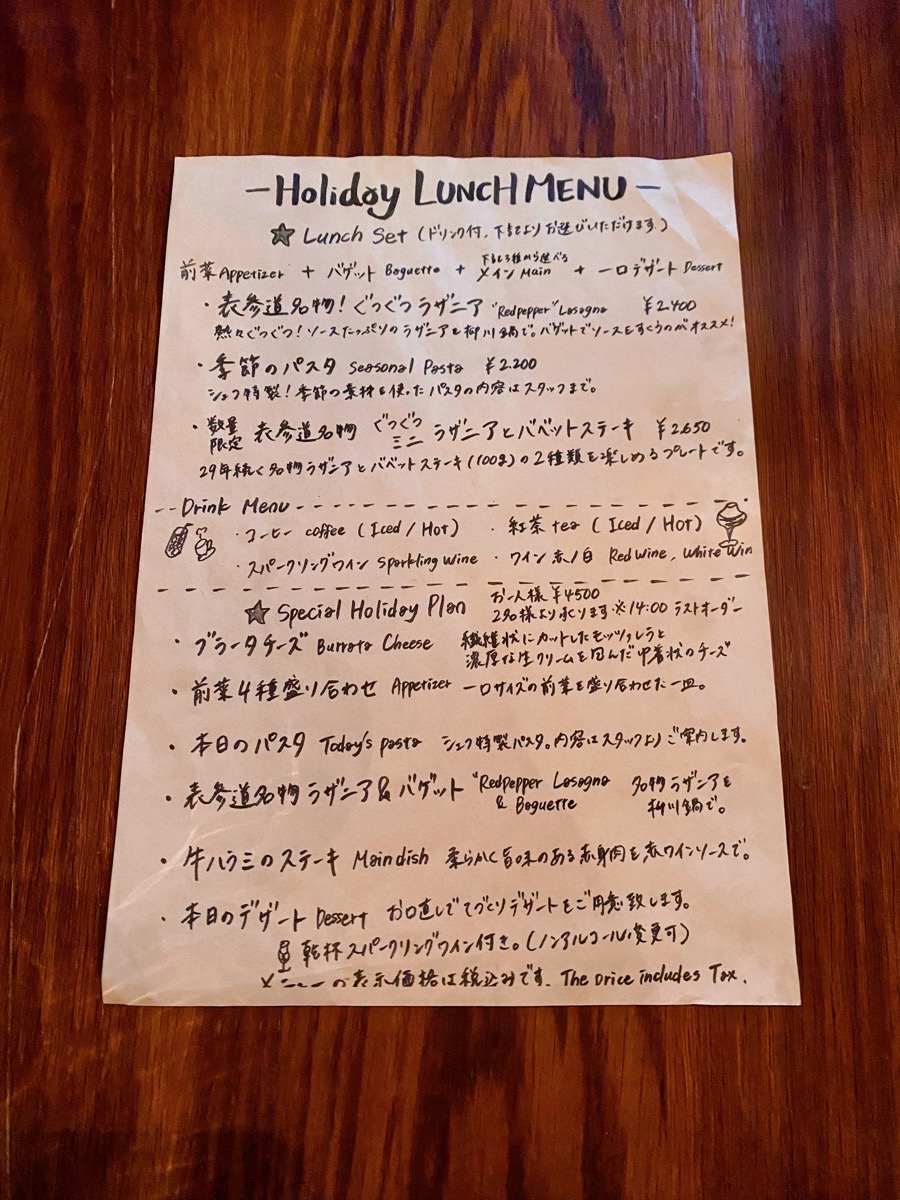 -Holiday LUNCH MENU-
★ Lunch Set (ドリンク付、下記よりお選びいただけます。)
前菜 Appetizer + バゲット Baguette + 下記3種から選べるメイン Main + 一口デザート Dessert
・表参道名物!ぐつぐつラザニア "Redpepper" Lasagna ¥2,400
熱々ぐつぐつ!ソースたっぷりのラザニアを柳川鍋で。バゲットでソースをすくうのがオススメ!
・季節のパスタ Seasonal Pasta ¥2,200
シェフ特製!季節の素材を使ったパスタの内容はスタッフまで。
・数量限定 表参道名物 ぐつぐつミニラザニアとバベットステーキ ¥2,650
29年続く名物ラザニアとバベットステーキ(100g)の2種類を楽しめるプレートです。
Drink Menu
・コーヒー coffee (Iced / Hot) ・紅茶 tea (Iced / Hot)
・スパークリングワイン Sparkling wine ・ワイン 赤/白 Red wine, White Win
★ Special Holiday Plan お一人様 ¥4500
2名様より承ります ※14:00 ラストオーダー
・ブラータチーズ Burrata Cheese 繊維状にカットしたモッツァレラと
濃厚な生クリームを包んだ巾着状のチーズ
・前菜4種盛り合わせ Appetizer 一口サイズの前菜を盛り合わせた一皿。
・本日のパスタ Today's pasta シェフ特製パスタ。内容はスタッフよりご案内します。
・表参道名物ラザニア&バゲット "Redpepper Lasagna & Baguette 名物ラザニアを柳川鍋で。
・牛ハラミのステーキ Main dish 柔らかく旨味のある赤身肉を赤ワインソースで。
・本日のデザート Dessert お口直しで手づくりデザートをご用意致します。
乾杯スパークリングワイン付き。(ノンアルコール変更可)
メニューの表示価格は税込みです. The price includes Tax.